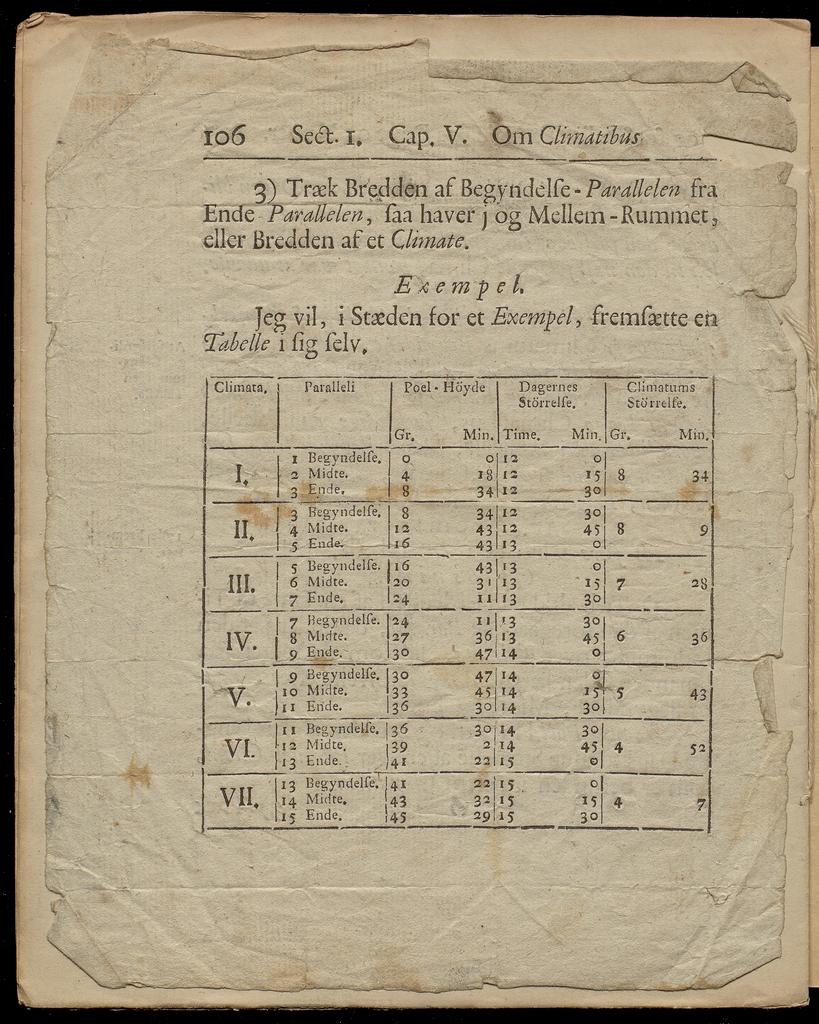 106 Sect. I. Cap. V. Om Climatibus
3) Træk Bredden af Begyndelſe-Parallelen fra
Ende Parallelen, ſaa haver j og Mellem-Rummet,
eller Bredden af et Climate.
Exempel.
Jeg vil, i Stæden for et Exempel, fremſætte en
Tabelle i ſig ſelv.
Climata. Paralleli Poel-Höyde Dagernes Climatums
Störrelſe. Störrelſe.
Gr. Min. Time. Min. Gr. Min.
1 Begyndelſe. 0 0 12 0
I. 2 Midte. 4 18 12 15 8 34
3 Ende. 8 34 12 30
3 Begyndelſe. 8 34 12 30
II. 4 Midte. 12 43 12 45 8 9
5 Ende. 16 43 13 0
5 Begyndelſe. 16 43 13 0
III. 6 Midte. 20 31 13 15 7 28
7 Ende. 24 11 13 30
7 Begyndelſe. 24 11 13 30
IV. 8 Midte. 27 36 13 45 6 36
9 Ende. 30 47 14 0
9 Begyndelſe. 30 47 14 0
V. 10 Midte. 33 45 14 15 5 43
11 Ende. 36 30 14 30
11 Begyndelſe. 36 30 14 30
VI. 12 Midte. 39 2 14 45 4 52
13 Ende. 41 22 15 0
13 Begyndelſe. 41 22 15 0
VII. 14 Midte. 43 32 15 15 4 7
15 Ende. 45 29 15 30